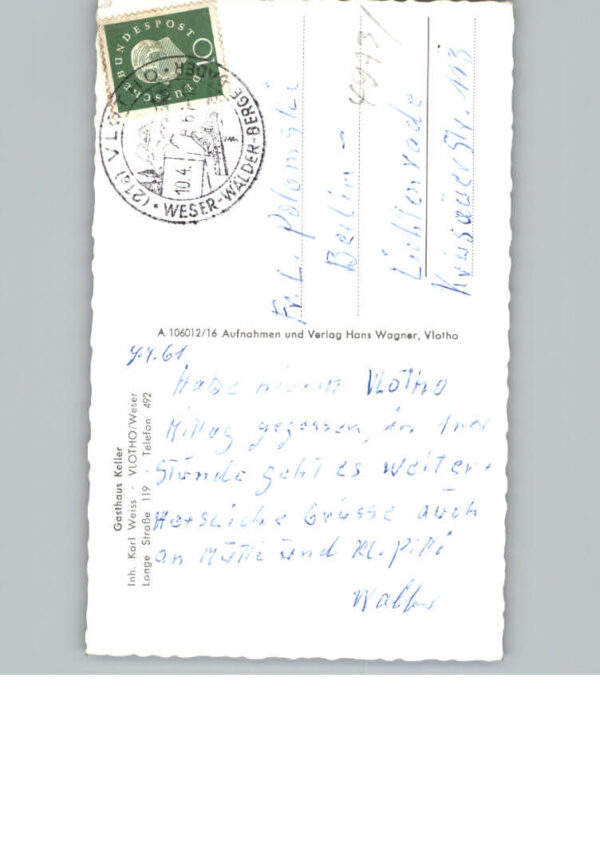 DEUTSCHE BUNDESPOST
10
(21a) VLOTHO
10.4.61
WESER-WÄLDER-BERGE
4973
Fr. L. Polomski
Berlin –
Lichtenrade
Krusauer Str. 113
A 106012/16 Aufnahmen und Verlag Hans Wagner, Vlotho
Gasthaus Keller
Inh. Karl Weiss · VLOTHO/Weser
Lange Straße 119 · Telefon 492
9.4.61
Habe hier in VLOTHO
Mittag gegessen, in 1ner
Stunde geht es weiter.
Herzliche Grüsse auch
an Mutti und Kl. Pitti